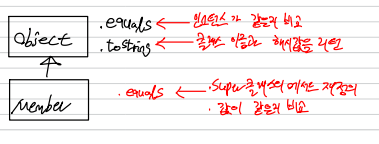 object
.equals ← 인스턴스가 같은지 비교
.toString ← 클래스 이름과 해시값을 리턴
Member
.equals ← .super클래스의 메서드 재정의
.값이 같은지 비교